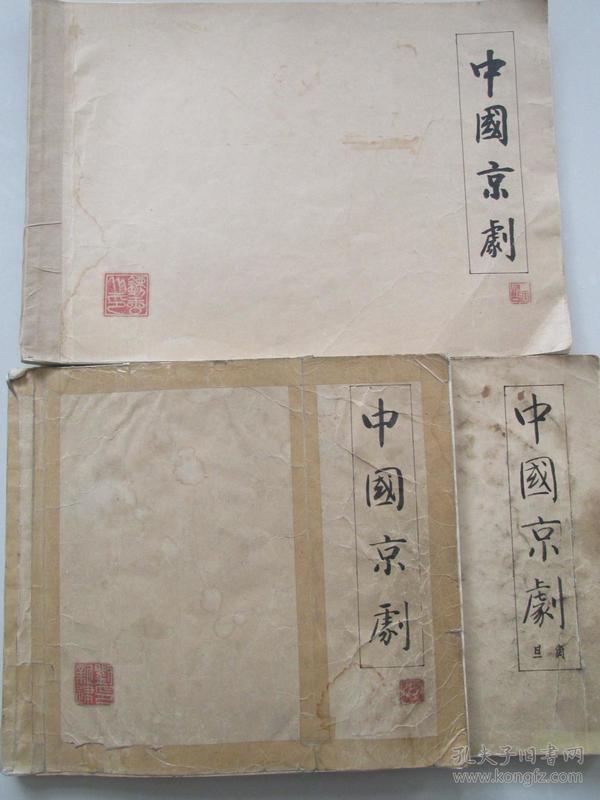 中國京劇
中國京劇
中國京劇
旦角
孔夫子旧书网
www.kongfz.com